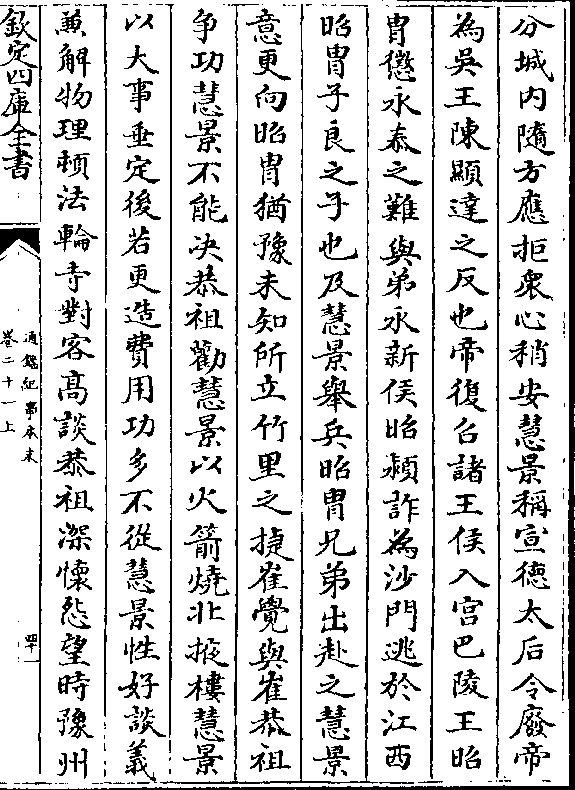 分城内隨方應拒衆心稍安慧景稱宣德太后令廢帝
為吳王陳顯達之反也帝復召諸王侯入宮巴陵王昭
胄懲永泰之難與弟永新侯昭穎詐為沙門逃於江西
昭胄子良之子也及慧景舉兵昭胄兄弟出赴之慧景
意更向昭胄猶豫未知所立竹里之捷崔覺與崔恭祖
争功慧景不能决恭祖勸慧景以火箭燒北掖樓慧景
以大事垂定後若更造費用功多不從慧景性好談義
兼解物理頓法輪寺對客髙談恭祖深懷怨望時豫州
欽定四庫全書
通鑑紀事本末
卷二十一上
四十一